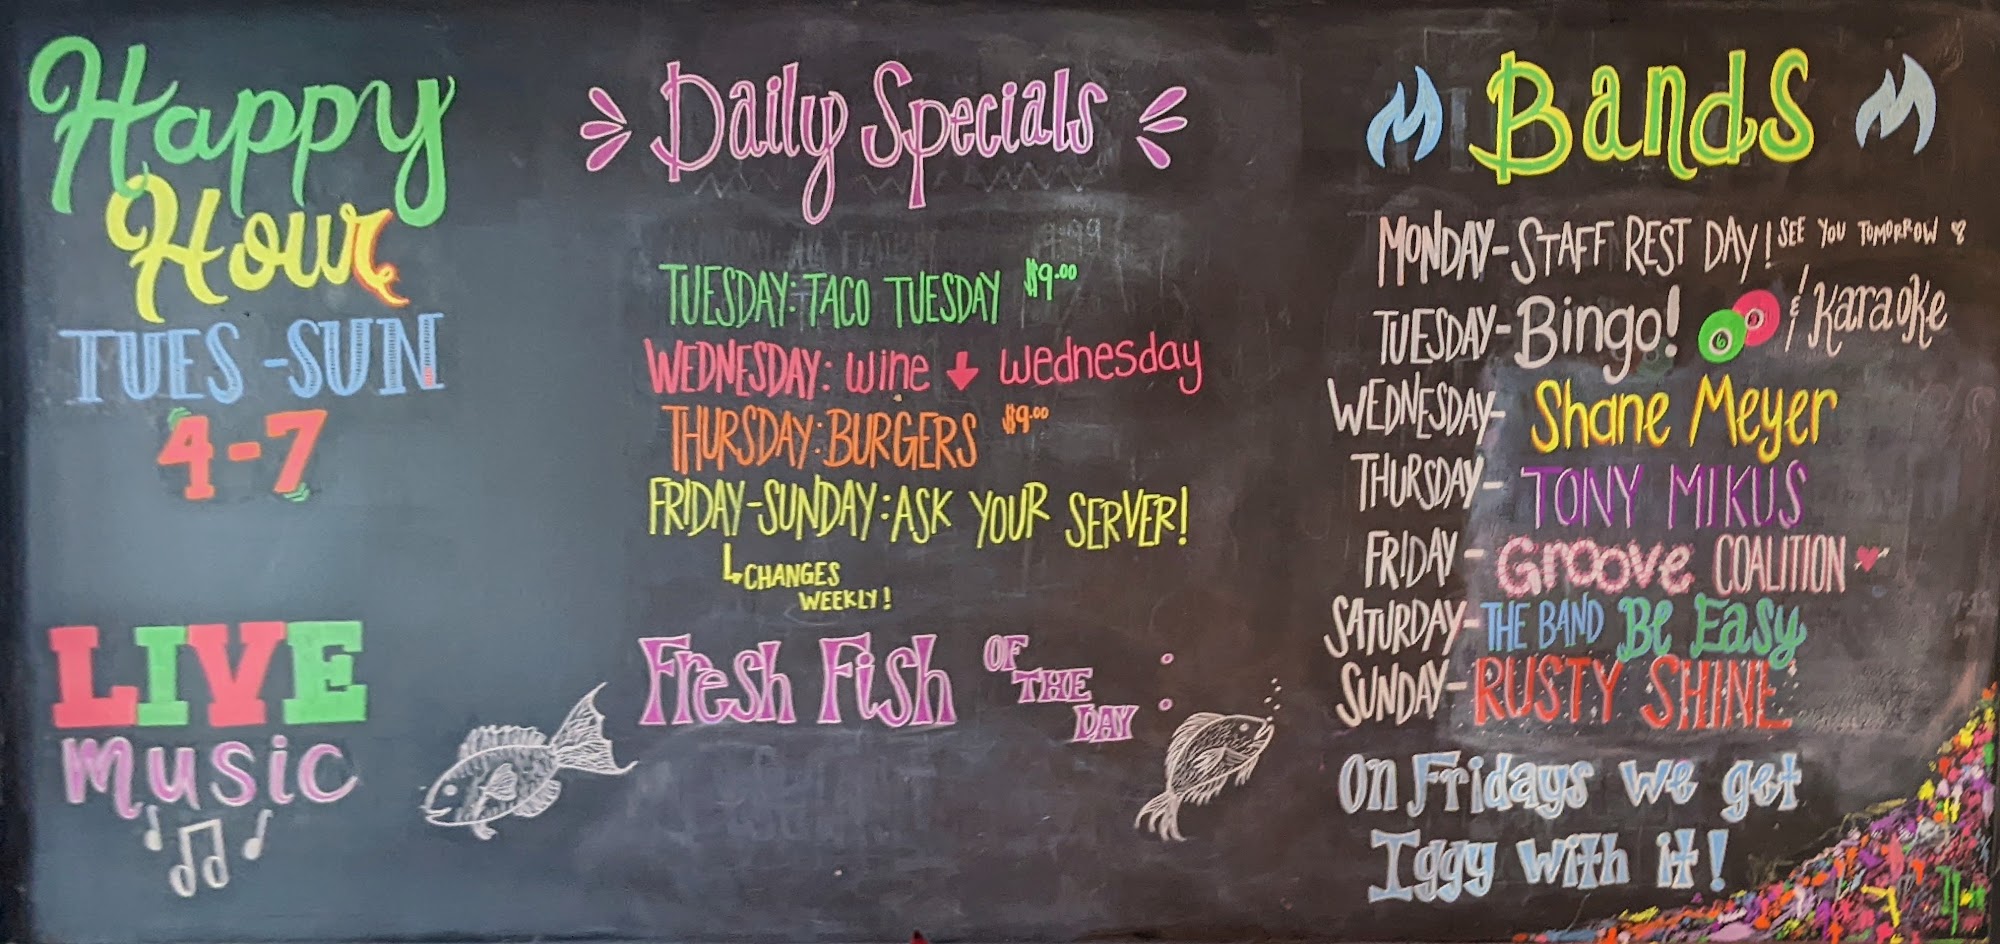 Happy
Hour
TUES - SUN
4-7
LIVE
music
Daily Specials
TUESDAY: TACO TUESDAY $9.00
WEDNESDAY: wine ↓ wednesday
THURSDAY: BURGERS $9.00
FRIDAY-SUNDAY: ASK YOUR SERVER!
↳ CHANGES
WEEKLY!
Fresh Fish OF THE DAY :
Bands
MONDAY - STAFF REST DAY! SEE YOU TOMORROW
TUESDAY - Bingo! & Karaoke
WEDNESDAY - Shane Meyer
THURSDAY - TONY MIKUS
FRIDAY - Groove COALITION
SATURDAY - THE BAND Be Easy
SUNDAY - RUSTY SHINE
On Fridays we get
Iggy with it!